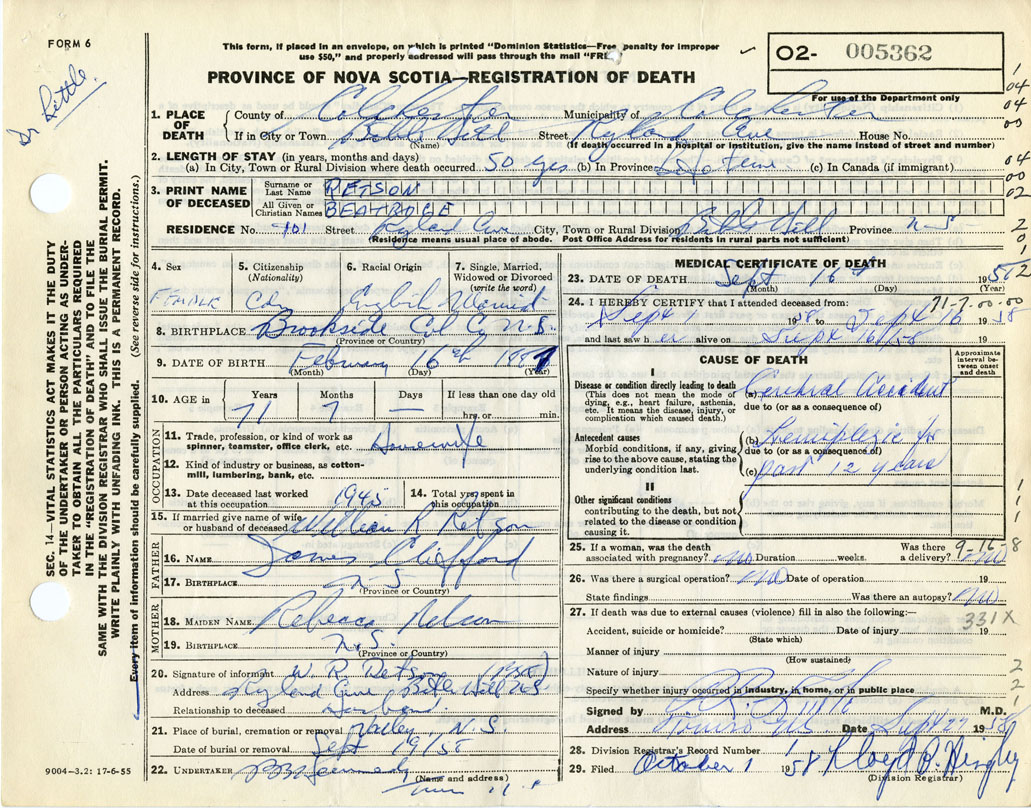 FORM 6
Dr Little.
This form, if placed in an envelope, on which is printed "Dominion Statistics—Free, penalty for improper
use $50," and properly addressed will pass through the mail "FREE"
PROVINCE OF NOVA SCOTIA—REGISTRATION OF DEATH
02- 005362
For use of the Department only
1. PLACE OF DEATH County of Colchester Municipality of Colchester
If in City or Town Bible Hill Street Ryland Ave House No.
(Name) (If death occurred in a hospital or institution, give the name instead of street and number)
2. LENGTH OF STAY (in years, months and days)
(a) In City, Town or Rural Division where death occurred 50 yrs (b) In Province Life time (c) In Canada (if immigrant)
3. PRINT NAME OF DECEASED Surname or Last Name RETSON
All Given or Christian Names BEATRICE
RESIDENCE No. 101 Street Ryland Ave City, Town or Rural Division Bible Hill Province N-S
(Residence means usual place of abode. Post Office Address for residents in rural parts not sufficient)
4. Sex FEMALE
5. Citizenship (Nationality) Cdn
6. Racial Origin English
7. Single, Married, Widowed or Divorced (write the word) Married
8. BIRTHPLACE Brookside Col Co N.S.
(Province or Country)
9. DATE OF BIRTH February 16th 1887
(Month) (Day) (Year)
10. AGE in Years Months Days If less than one day old
71 7 — hrs. or min.
OCCUPATION
11. Trade, profession, or kind of work as spinner, teamster, office clerk, etc. Housewife
12. Kind of industry or business, as cotton-mill, lumbering, bank, etc.
13. Date deceased last worked at this occupation 1945
14. Total yrs. spent in this occupation
15. If married give name of wife or husband of deceased William R Retson
FATHER
16. NAME James Clifford
17. BIRTHPLACE N-S
(Province or Country)
MOTHER
18. MAIDEN NAME Rebecca Nelson
19. BIRTHPLACE N.S.
(Province or Country)
20. Signature of informant W. R. Retson
Address Ryland Ave Bible Hill NS
Relationship to deceased Husband
21. Place of burial, cremation or removal Valley, N.S.
Date of burial or removal Sept 19/58
22. UNDERTAKER
(Name and address)
MEDICAL CERTIFICATE OF DEATH
23. DATE OF DEATH Sept 16th 1958
(Month) (Day) (Year)
24. I HEREBY CERTIFY that I attended deceased from: 71-7-00-00
Sept 1 1958 to Sept 16 1958
and last saw her alive on Sept 16/58 19
CAUSE OF DEATH
Approximate interval between onset and death
I
Disease or condition directly leading to death (a) Cerebral accident
(This does not mean the mode of dying, e.g., heart failure, asthenia, etc. It means the disease, injury, or complication which caused death.)
due to (or as a consequence of)
Antecedent causes (b) hemiplegic for
Morbid conditions, if any, giving rise to the above cause, stating the underlying condition last.
due to (or as a consequence of)
(c) past 12 years
II
Other significant conditions
contributing to the death, but not related to the disease or condition causing it.
25. If a woman, was the death associated with pregnancy? no Duration weeks. Was there a delivery? no
9-16-8
26. Was there a surgical operation? no Date of operation 19
State findings Was there an autopsy? no
27. If death was due to external causes (violence) fill in also the following:—
331X
Accident, suicide or homicide? Date of injury 19
(State which)
Manner of injury
(How sustained)
Nature of injury
Specify whether injury occurred in industry, in home, or in public place
Signed by M.D.
Address Truro NS Date Sept 22 1958
28. Division Registrar's Record Number
29. Filed October 1 1958 Lloyd B. Hingley
(Division Registrar)
SEC. 14—VITAL STATISTICS ACT MAKES IT THE DUTY
OF THE UNDERTAKER OR PERSON ACTING AS UNDER-
TAKER TO OBTAIN ALL THE PARTICULARS REQUIRED
IN THE "REGISTRATION OF DEATH" AND TO FILE THE
SAME WITH THE DIVISION REGISTRAR WHO SHALL ISSUE THE BURIAL PERMIT.
WRITE PLAINLY WITH UNFADING INK. THIS IS A PERMANENT RECORD.
Every item of information should be carefully supplied. (See reverse side for instructions.)
9004—3.2: 17-6-55
1
04
04
00
04
00
02
2
0
2
1
1
1
2
2
1